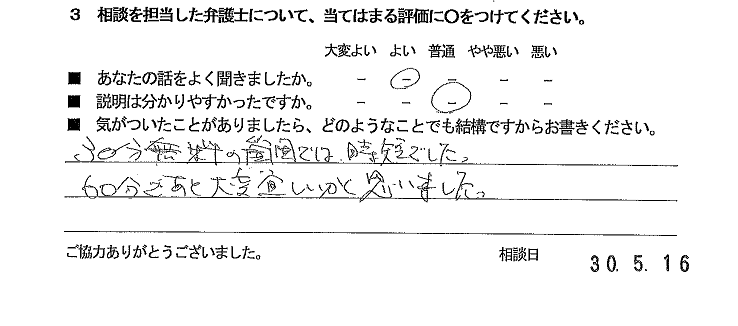 3 相談を担当した弁護士について、当てはまる評価に〇をつけてください。
大変よい よい 普通 やや悪い 悪い
■ あなたの話をよく聞きましたか。 － － － － －
■ 説明は分かりやすかったですか。 － － － － －
■ 気がついたことがありましたら、どのようなことでも結構ですからお書きください。
30分無料の範囲では、時短でした。
60分だあと大変宜しいかと思いました。
ご協力ありがとうございました。 相談日 30. 5. 16